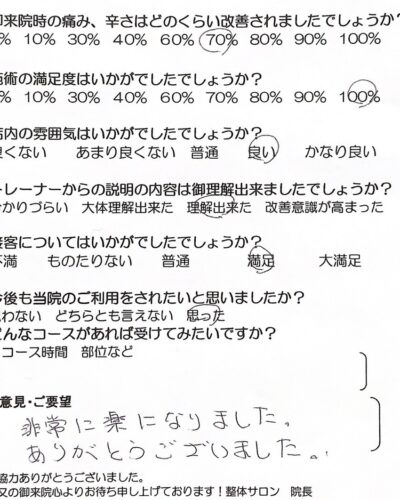 来院時の痛み、辛さはどのくらい改善されましたでしょうか?
% 10% 30% 40% 60% 70% 80% 90% 100%
術の満足度はいかがでしたでしょうか?
% 10% 30% 40% 60% 70% 80% 90% 100%
内の雰囲気はいかがでしたでしょうか?
くない あまり良くない 普通 良い かなり良い
レーナーからの説明の内容は御理解出来ましたでしょうか?
かりづらい 大体理解出来た 理解出来た 改善意識が高まった
客についてはいかがでしたでしょうか?
満 ものたりない 普通 満足 大満足
後も当院のご利用をされたいと思いましたか?
わない どちらとも言えない 思った
んなコースがあれば受けてみたいですか?
コース時間 部位など
意見・ご要望
非常に楽になりました。
ありがとうございました。
協力ありがとうございました。
又の御来院心よりお待ち申し上げております!整体サロン 院長